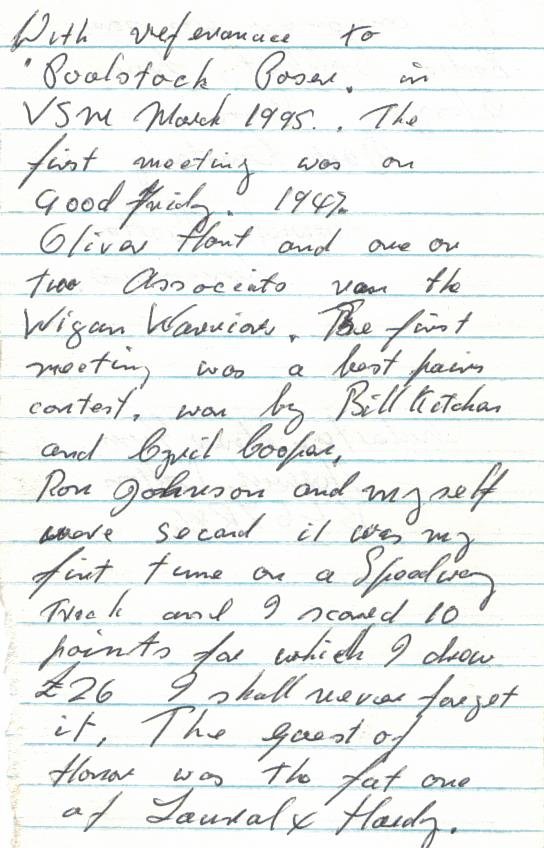 With referance to
"Poolstock Poser. in
VSM March 1995. . The
first meeting was on
Good Friday. 1947.
Oliver Hart and one or
two Associats ran the
Wigan Warriors. The first
meeting was a best pairs
contest, won by Bill Kitchen
and Cyril Cooper,
Ron Johnson and myself
were second it was my
first time on a Speedway
Track and I scored 10
points for which I drew
£26 I shall never forget
it, The Guest of
Honor was the fat one
of Laural & Hardy.